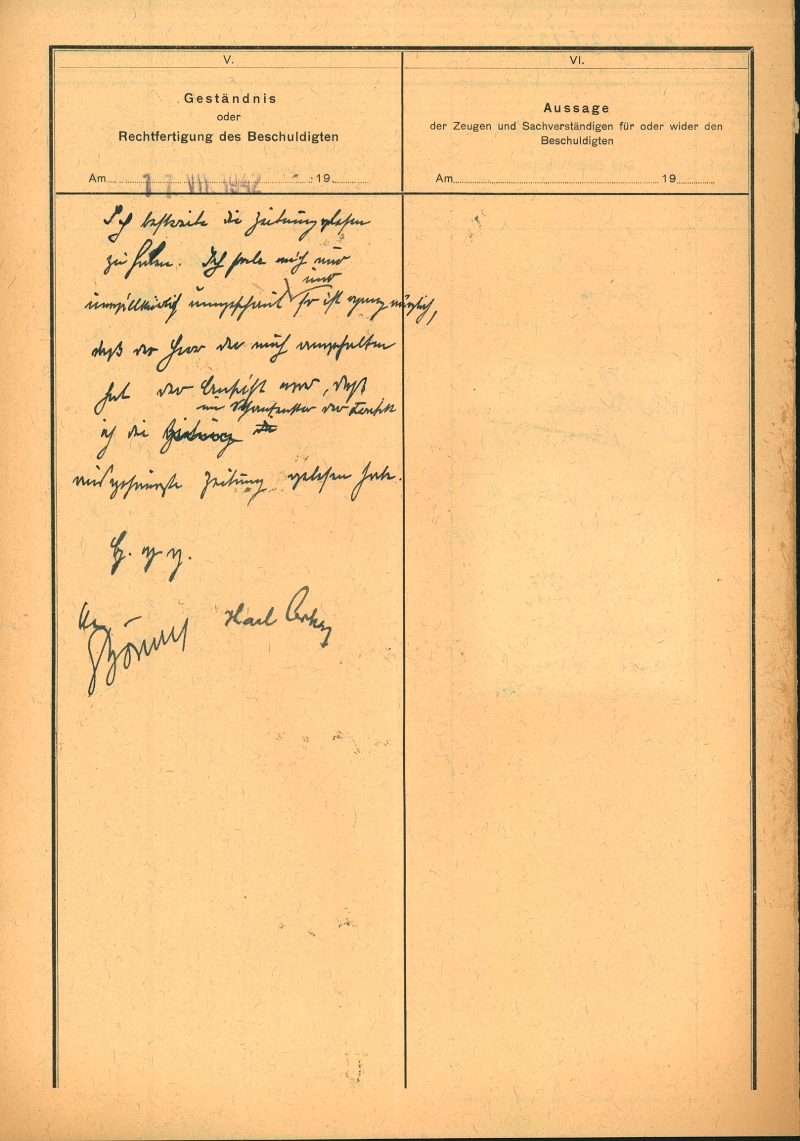 V.
Geständnis
oder
Rechtfertigung des Beschuldigten
Am 17. VII. 1942 19
Ich bestreite die Zeitung gelesen
zu haben. Ich habe mich nur
und
unwillkürlich umgeschaut so ist ganz möglich,
daß der Herr der mich angehalten
hat der Ansicht war, daß
im Schaufenster der
ich die Zeitung
Zeitung gelesen habe.
G. g. g.
Karl
VI.
Aussage
der Zeugen und Sachverständigen für oder wider den
Beschuldigten
Am 19